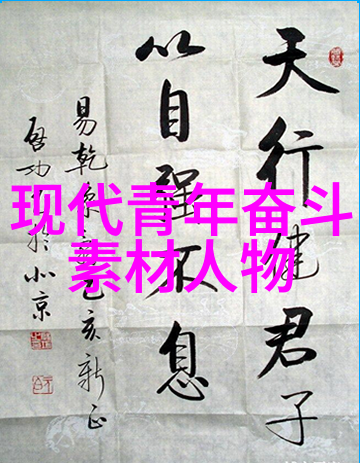 现代青年奋斗
素材人物
天行健君子
以自强不息
易乾象己亥新正
启功於北京